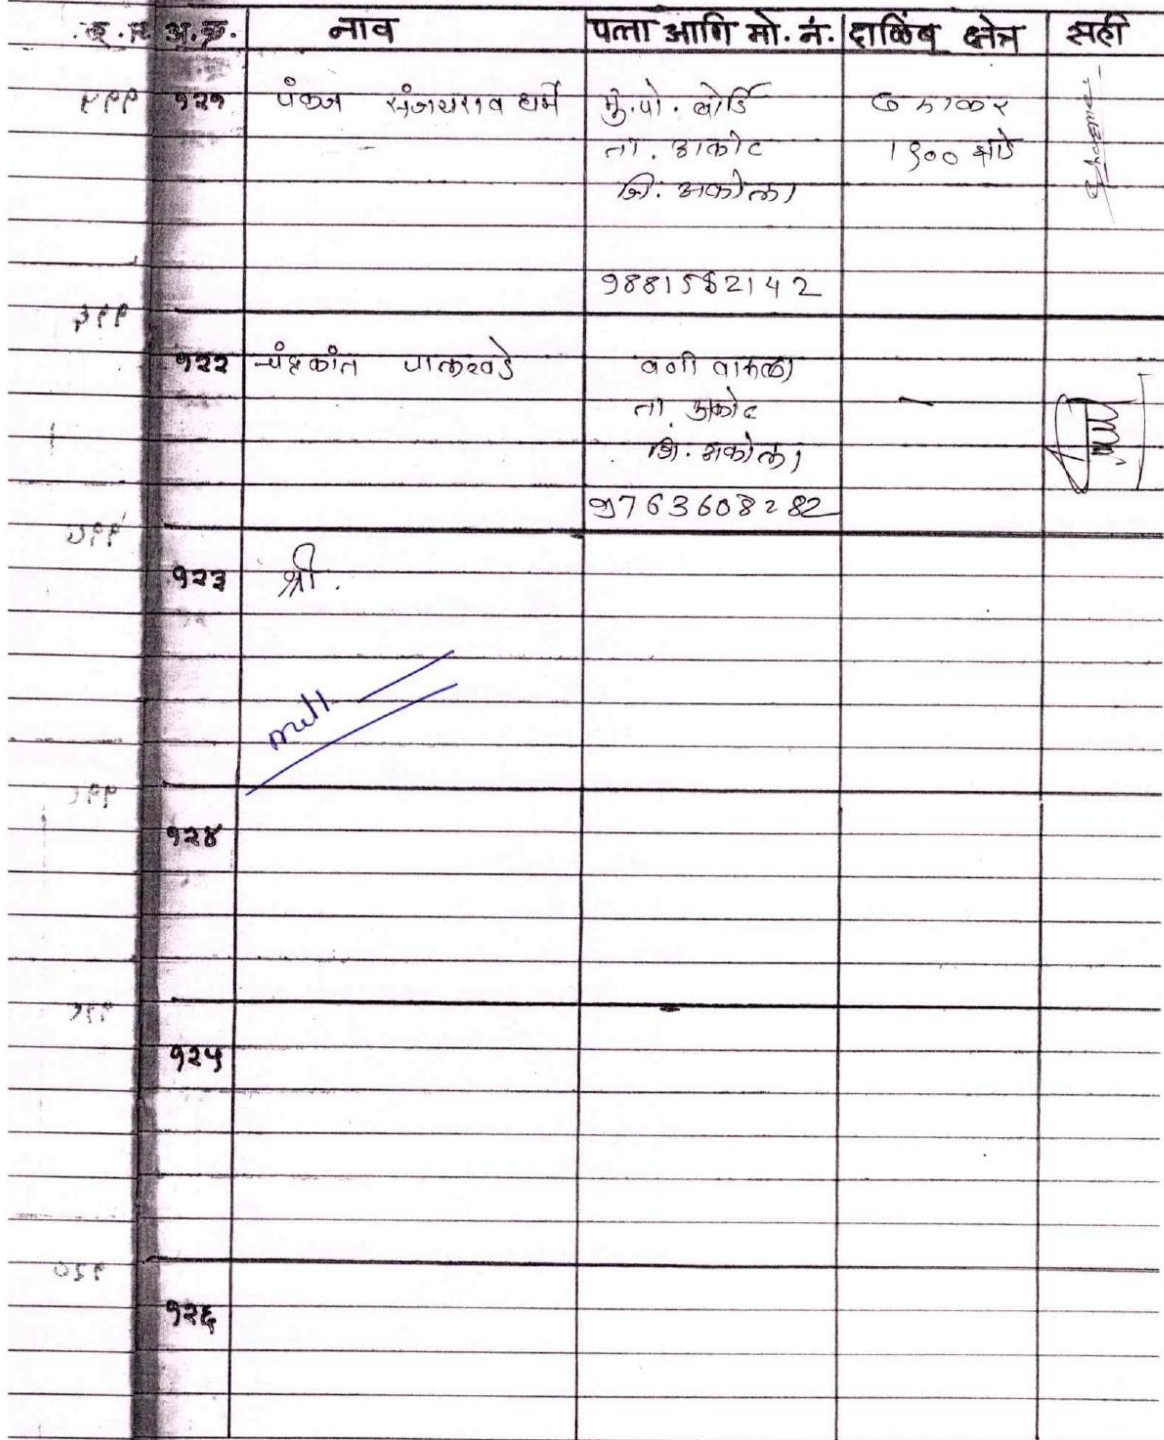 अ.क्र. नाव पत्ता आणि मो. नं. डाळिंब क्षेत्र सही
१२१ पंकज संजयराव धर्मे मु.पो. बोर्डि
ता. अकोट १९०० झाडे
जि. अकोला
9881582142
१२२ चंद्रकांत पालखडे वणी वारुळा
ता अकोट
जि. अकोला
9763608282
१२३ श्री.
null
१२४
१२५
१२६